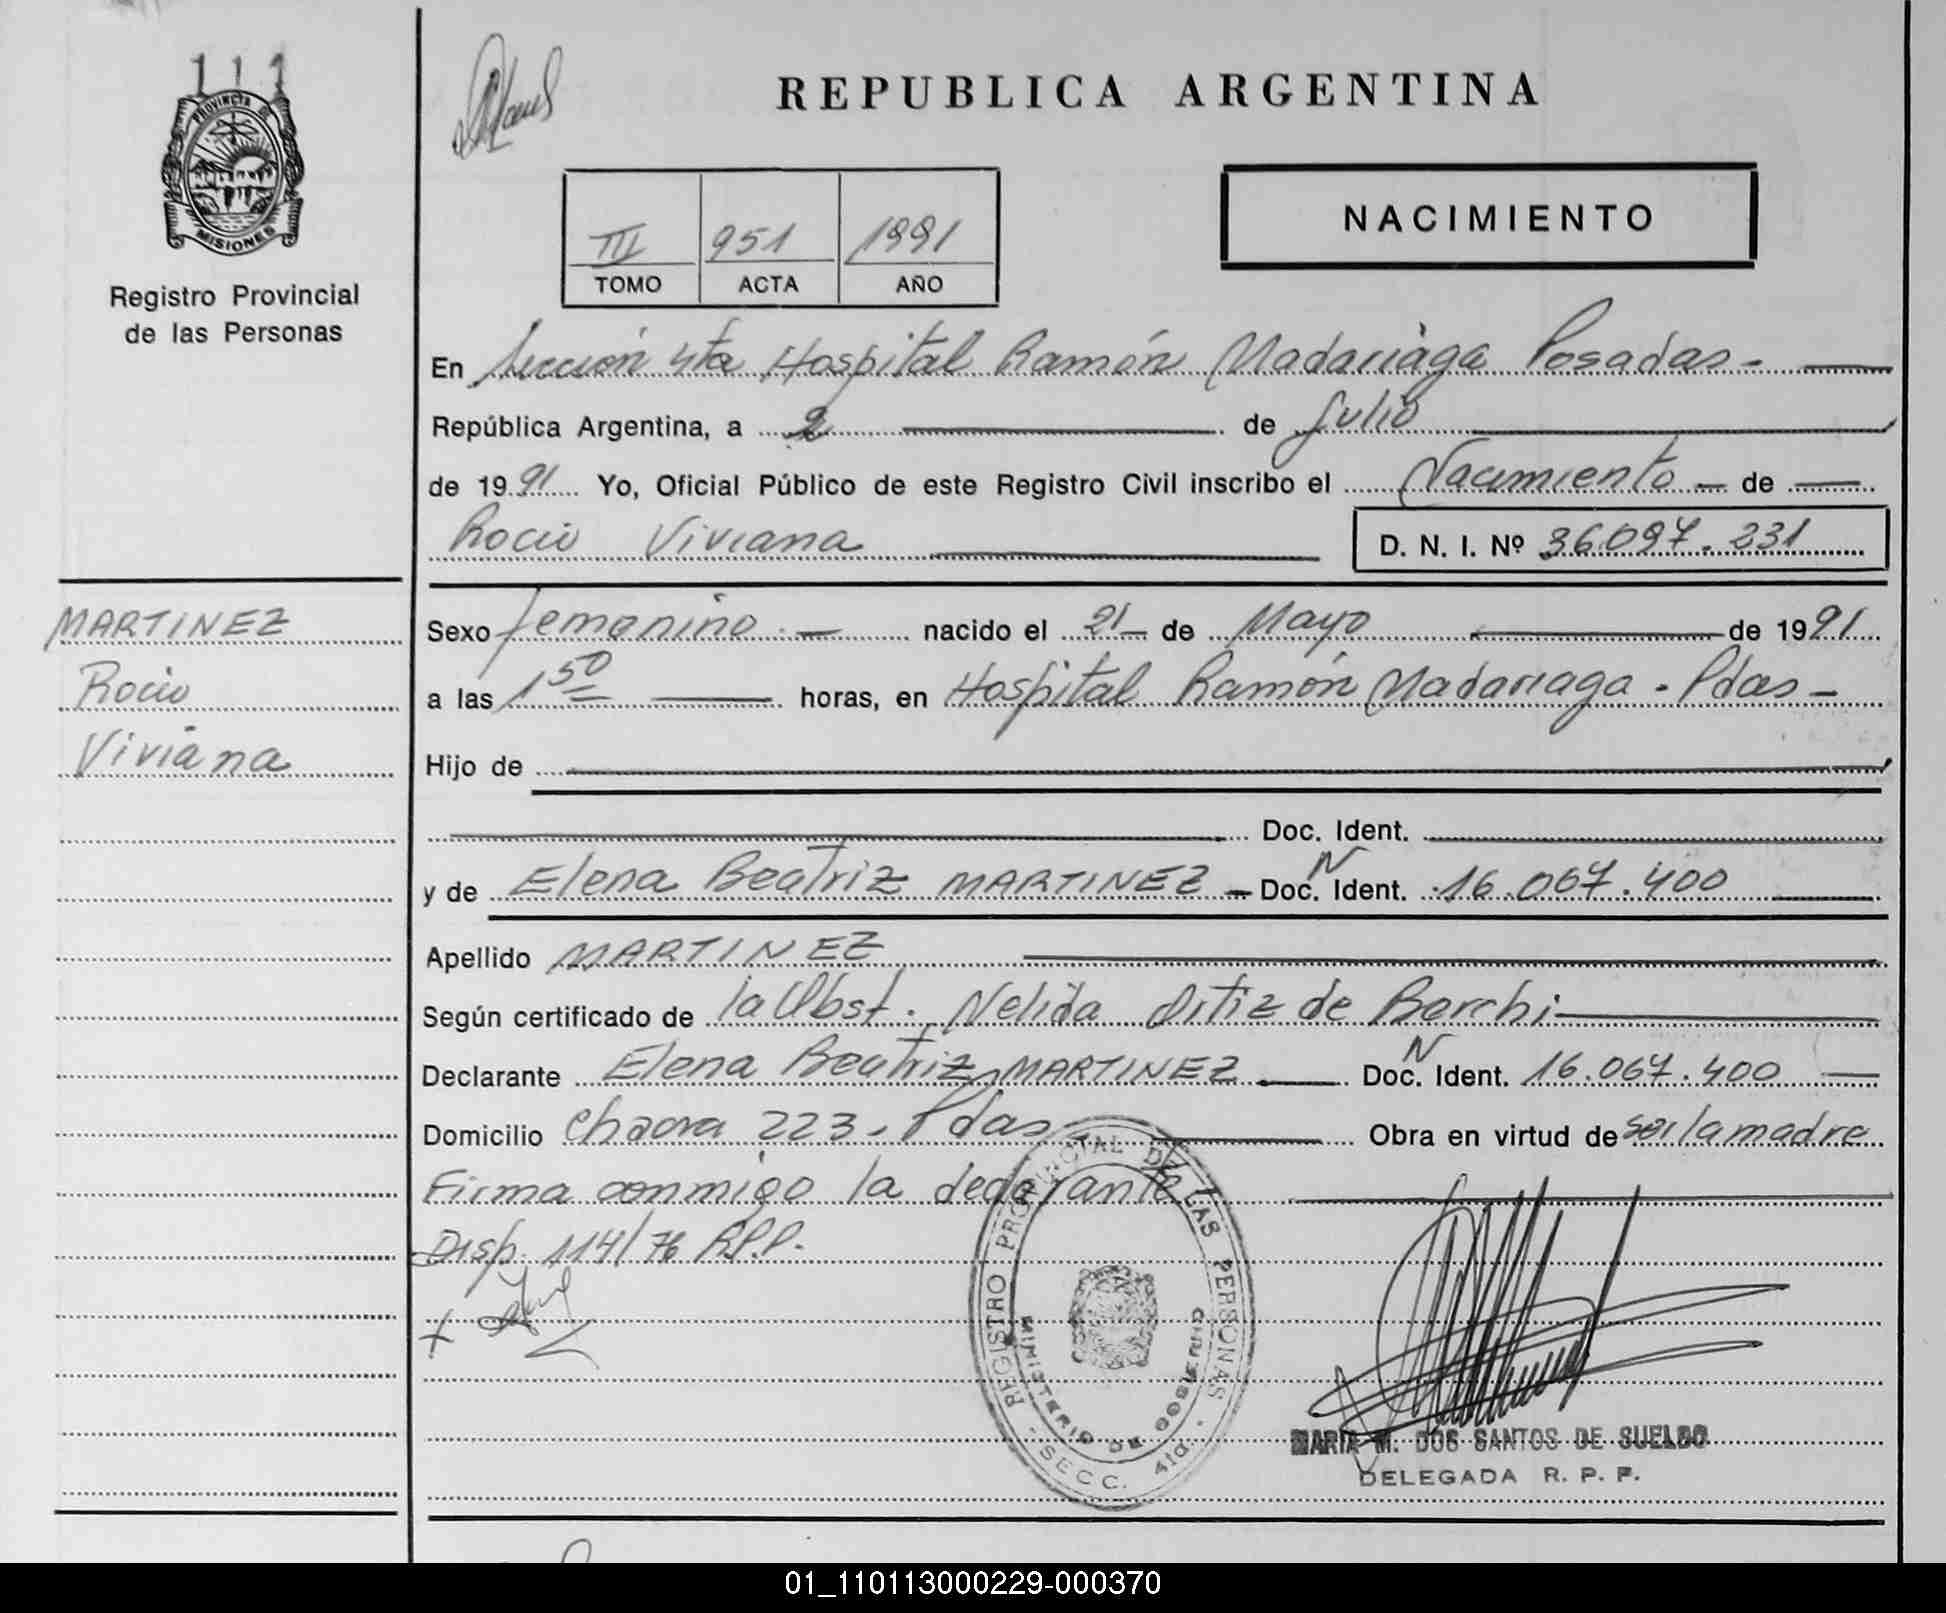 PROVINCIA DE
MISIONES
Registro Provincial
de las Personas
MARTINEZ
Rocio
Viviana
REPUBLICA ARGENTINA
III 951 1991
TOMO ACTA AÑO
NACIMIENTO
En Sección 4ta Hospital Ramón Madariaga Posadas -
República Argentina, a 2 de Julio
de 1991 Yo, Oficial Público de este Registro Civil inscribo el Nacimiento - de
Rocio Viviana D. N. I. Nº 36.097.231
Sexo femenino. - nacido el 21 - de Mayo de 1991
a las 1 50 horas, en Hospital Ramón Madariaga - Pdas -
Hijo de
Doc. Ident.
y de Elena Beatriz MARTINEZ - Doc. N Ident. 16.067.400
Apellido MARTINEZ
Según certificado de la Obst. Nelida Ortiz de Berchi
Declarante Elena Beatriz MARTINEZ Doc. N Ident. 16.067.400
Domicilio Chacra 223 - Pdas Obra en virtud de ser la madre
Firma conmigo la declarante
Disp. 114/76 R.P.P.
REGISTRO PROVINCIAL DE LAS PERSONAS
MINISTERIO DE GOBIERNO
- SECC. 4ta. -
MARIA M. DOS SANTOS DE SUELDO
DELEGADA R. P. P.
01_110113000229-000370